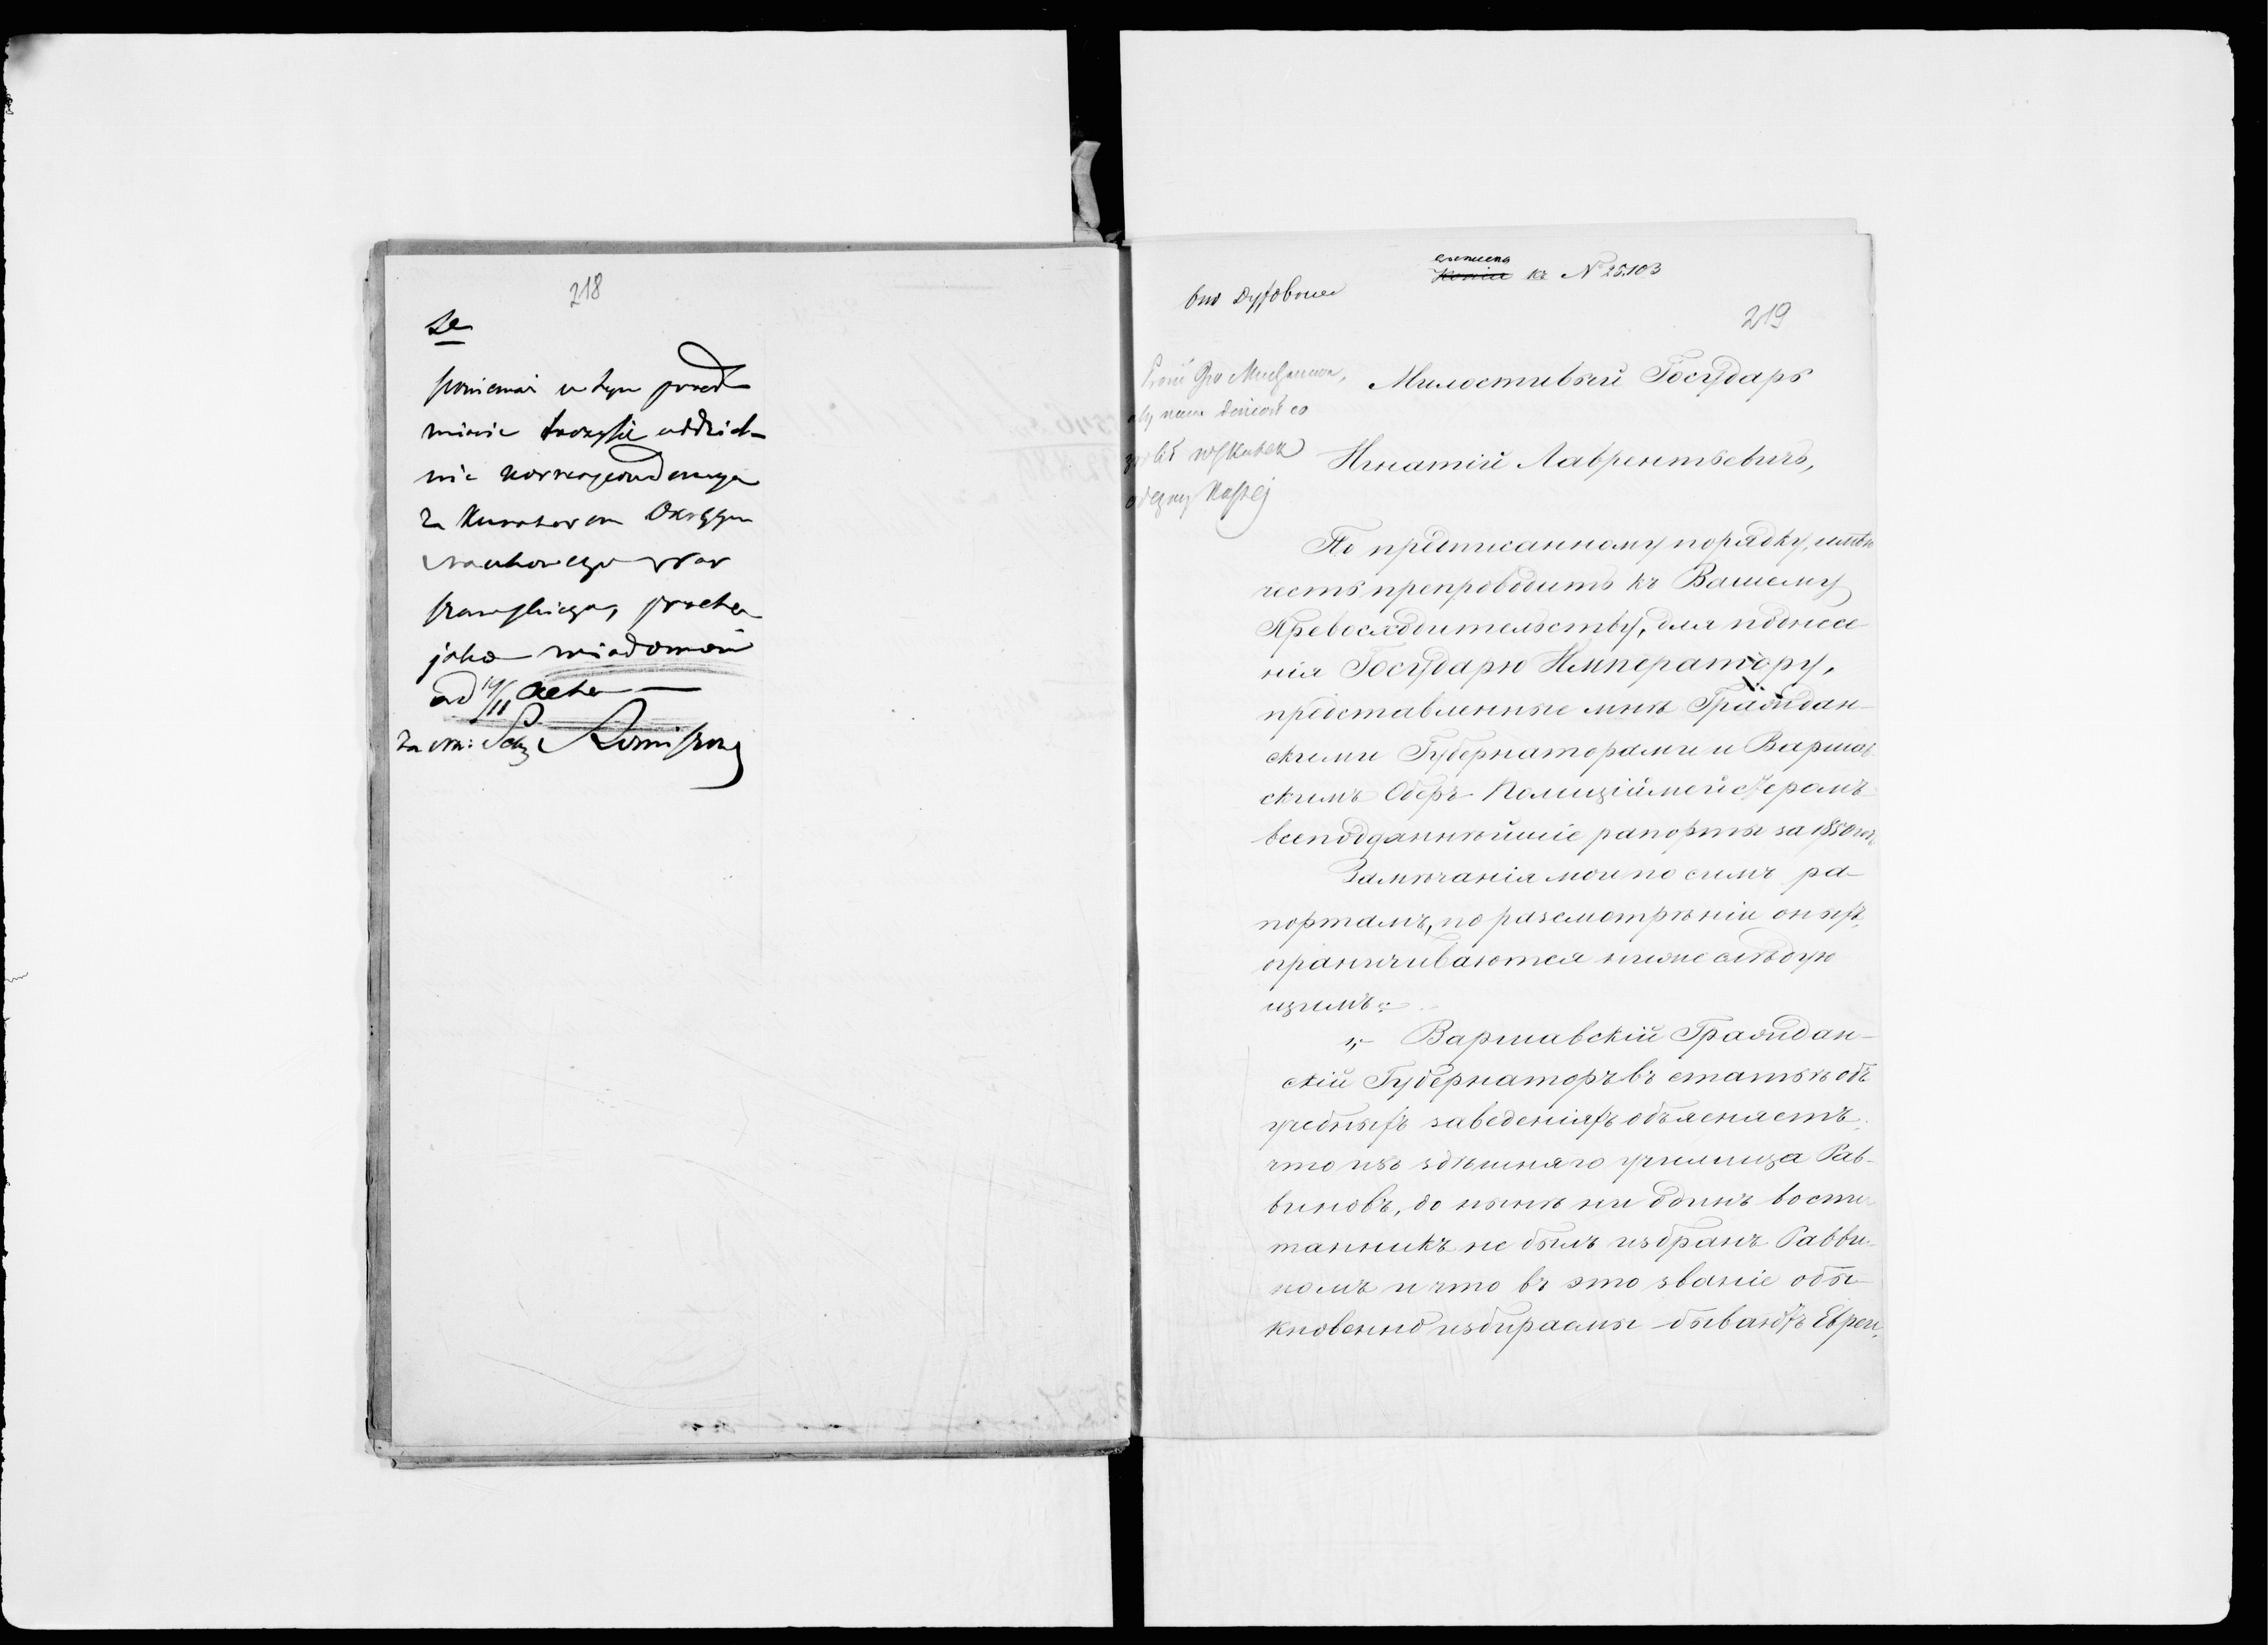 218
ponieważ w tym przed-
miocie toczy się oddziel-
nie korrespondencya
za Kuratorem Okręgu
Naukowego War
szawskiego, przeto
jako wiadomość
ad acta
къ № 25103
219
Милостивый Государь
Игнатій Лаврентьевичъ,
По предписанному порядку, имѣю
честь препроводить къ Вашему
Превосходительству, для поднесе
нія Государю Императору,
представленные мнѣ Граждан-
скими Губернаторами и Варшав
скимъ Оберъ-Полиціймейстеромъ
всеподданнѣйшіе рапорты за 1850 годъ
Замѣчанія мои по симъ ра-
портамъ, по разсмотрѣніи оныхъ,
ограничиваются нижеслѣдую
щимъ:
1, Варшавскій Граждан-
скій Губернаторъ въ статьѣ объ
учебныхъ заведеніяхъ объясняетъ,
что изъ здѣшняго училища Рав-
виновъ, до нынѣ ни одинъ воспи
танникъ не былъ избранъ Равви-
номъ и что въ это званіе обы-
кновенно избираемы бываютъ Евреи,